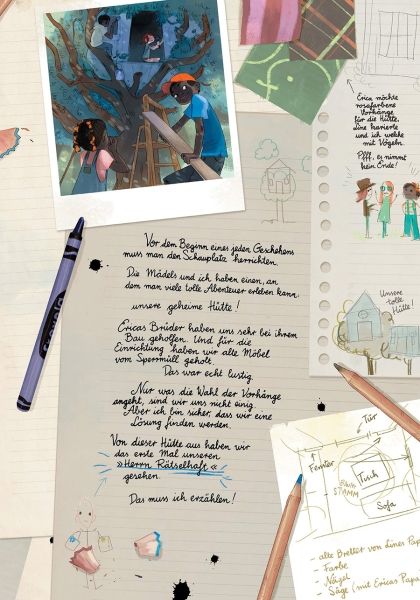 Vor dem Beginn eines jeden Geschehens
muss man den Schauplatz herrichten.
Die Mädels und ich haben einen, an
dem man viele tolle Abenteuer erleben kann:
unsere geheime Hütte!
Ericas Brüder haben uns sehr bei ihrem
Bau geholfen. Und für die
Einrichtung haben wir alle Möbel
vom Sperrmüll geholt.
Das war echt lustig.
Nur was die Wahl der Vorhänge
angeht, sind wir uns nicht einig.
Aber ich bin sicher, dass wir eine
Lösung finden werden.
Von dieser Hütte aus haben wir
das erste Mal unseren
»Herrn Rätselhaft«
gesehen.
Das muss ich erzählen!
Erica möchte
rosafarbene
Vorhänge
für die Hütte,
Line karierte
und ich welche
mit Vögeln.
Pfff, es nimmt
kein Ende!
Unsere
tolle
Hütte!
Tür
Fenster
Tisch
STAMM
Sofa
- alte Bretter von Lines Pap
- Farbe
- Nägel
- Säge (mit Ericas Papa